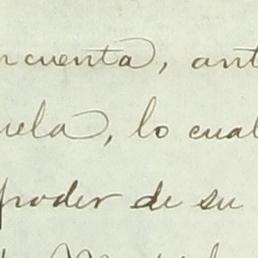 ncuenta, ant
uela, lo cual
poder de su